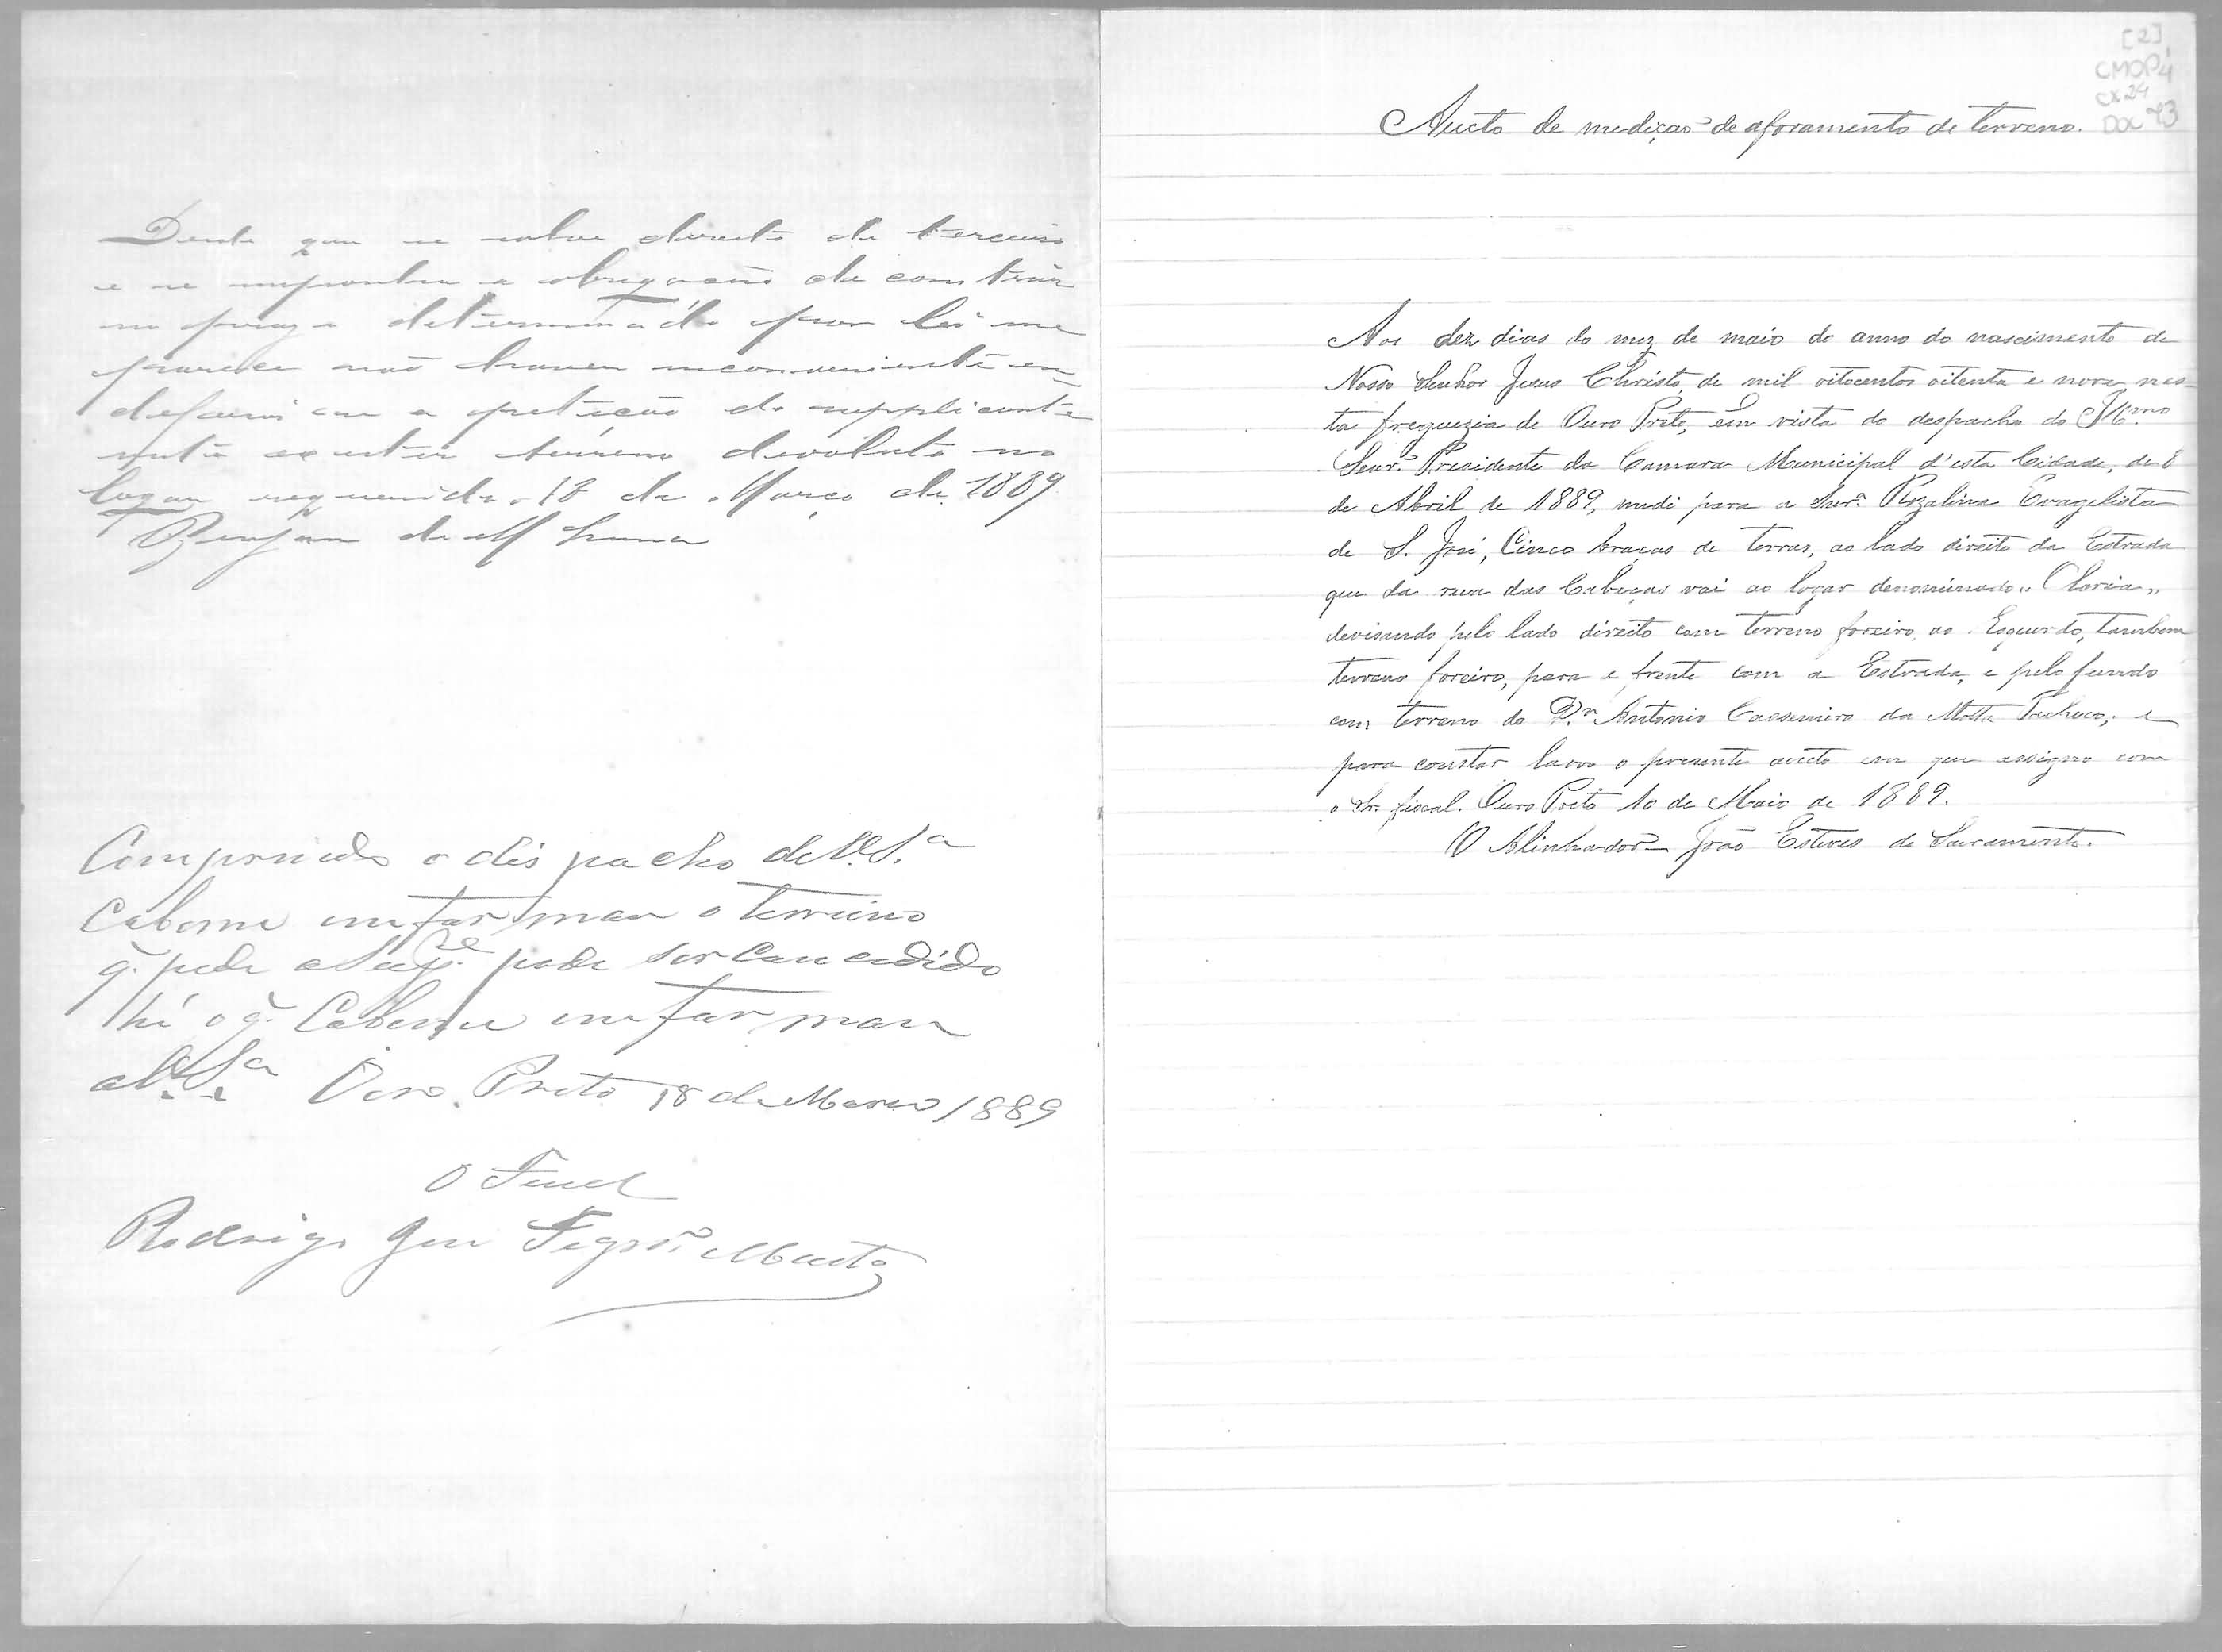 Desde que se salve direito de terceiro
e se imponha a obrigação de construir
no prazo determinado por lei me
parece não haver inconveniente em
deferir se a petição do supplicante
visto existir terreno devoluto no
logar requerido. 18 de Março de 1889
Comprindo o dispacho de V.S.ª
Cabeme imformar o terreino
q̃. pede a Sup.e pode ser Concedido
hé o q̃. Cabeme imformar
a V.S.ª Ouro Preto 18 de Março 1889
O Fiscal
Rodrigo José Figr.ª Murta
[2]
CMOP4
CX 24
DOC 73
Aucto de medição de aforamento de terreno.
Aos dez dias do mez de maio do anno do nascimento de
Nosso Senhor Jesus Christo, de mil oitocentos oitenta e nove, nes-
ta freguezia de Ouro Preto, em vista do despacho do Ill.mo
Senr. Presidente da Camara Municipal d'esta Cidade, de 8
de Abril de 1889, medi para a Snr.ª Rozalina Evagelista
de S. José, Cinco braças de terras, ao lado direito da Estrada
que da rua das Cabeças vai ao logar denominado „Olaria„
devisando pelo lado direito com terreno foreiro, ao Esquerdo, tambem
terreno foreiro, para a frente com a Estrada, e pelo fundo
com terreno do D.r Antonio Cassemiro da Motta Pacheco; e
para constar lavro o presente aucto em que assigno com
o Sr. fiscal. Ouro Preto 10 de Maio de 1889.
O Alinhador João Esteves de Sacramento.